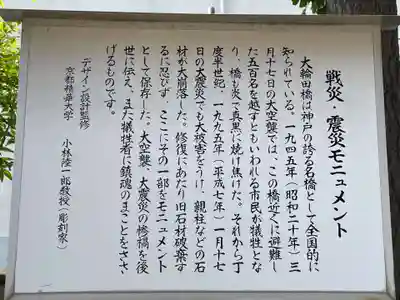 戦災・震災モニュメント
大輪田橋は神戸の誇る名橋として全国的に
知られている。一九四五年（昭和二十年）三
月十七日の大空襲では、この橋近くに避難し
た五百名を越すともいわれる市民が犠牲とな
り、橋も炎で真黒に焼け焦げた。それから丁
度半世紀、一九九五年（平成七年）一月十七
日の大震災でも大被害をうけ、親柱などの石
材が大崩落した。修復にあたり旧石材破棄す
るに忍びず、ここにその一部をモニュメント
として保存した。大空襲、大震災の惨禍を後
世に伝え、また犠牲者に鎮魂のまことをささ
げるものです。
デザイン・設計監修
京都精華大学　小林陸一郎教授（彫刻家）